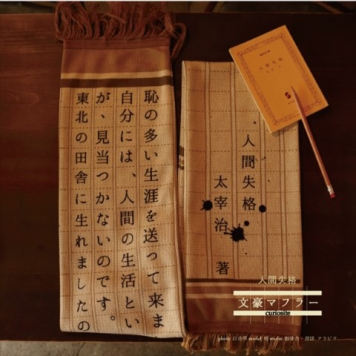 恥の多い生涯を送って来ま
自分には、人間の生活とい
が、見当つかないのです。
東北の田舎に生れましたの
人間失格
太宰治 著
人間失格
文豪マフラー
curiosité